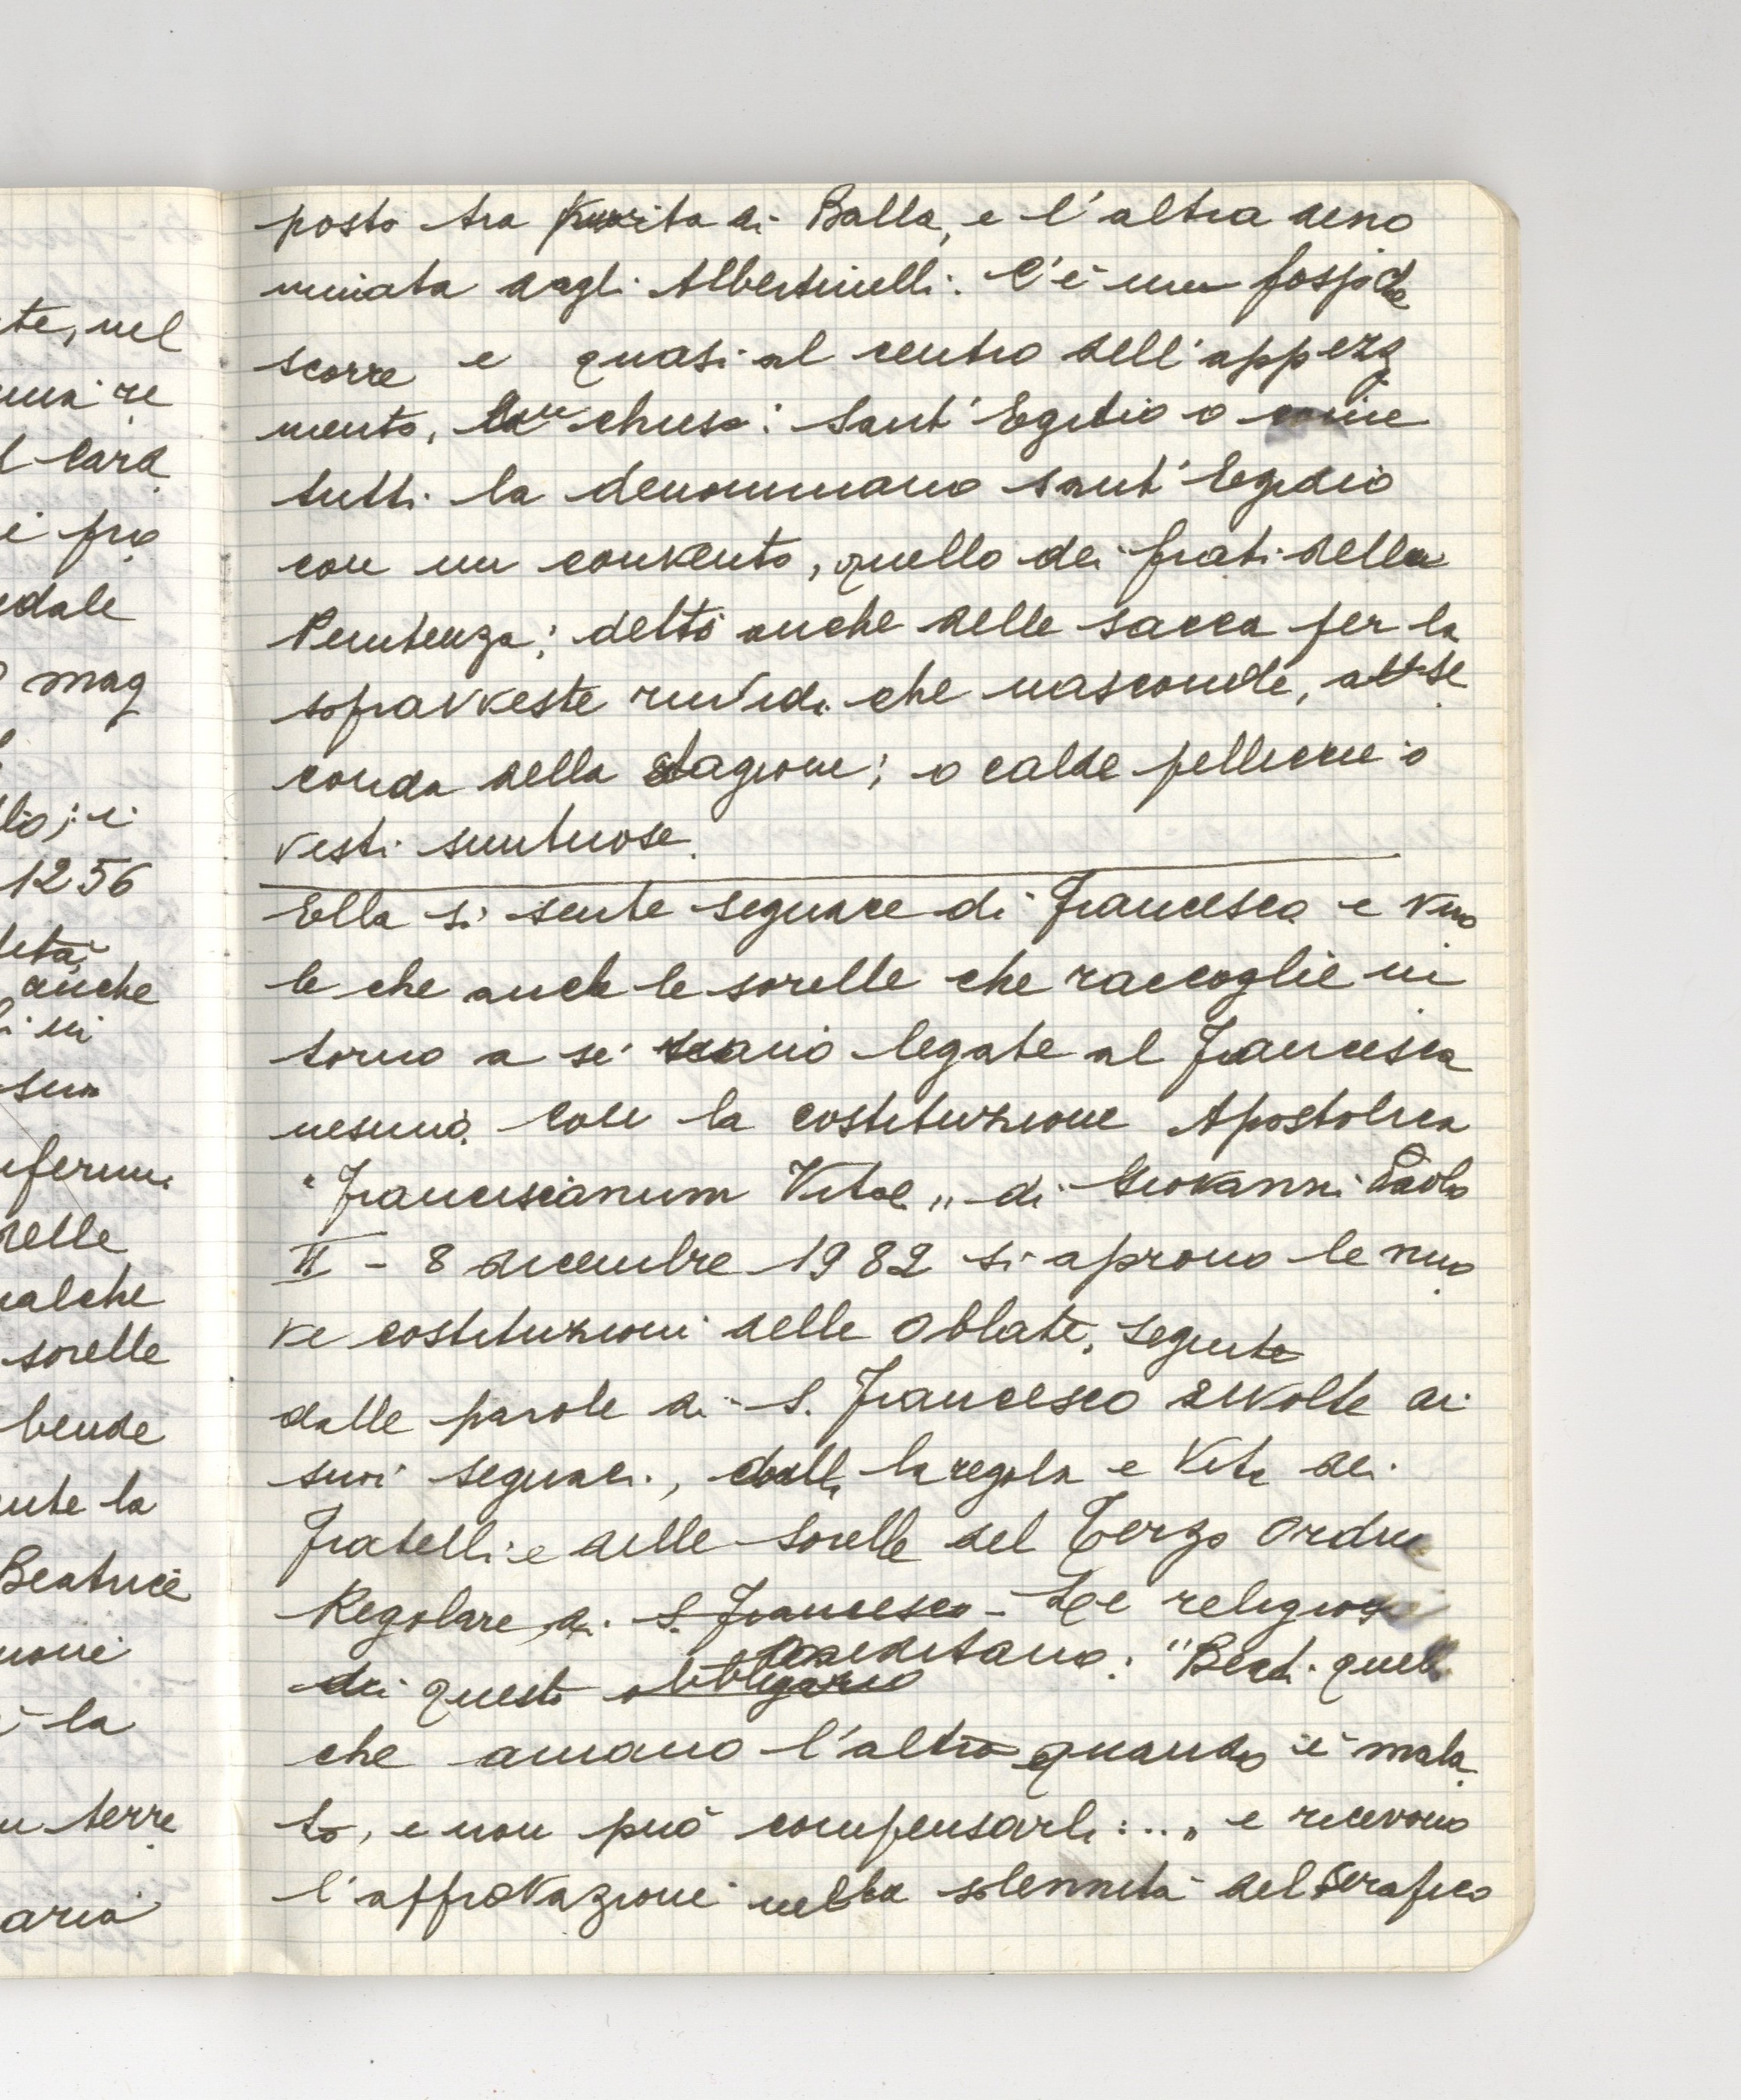 te, nel
re
card
i pro
edale
mag
lio; i
1256
anche
in
sun
inferm
relle
ualche
sorelle
bende
ente la
Beatrice
la
terre
aria
posto tra di Balla, e l'altra deno
minata dagli Albertinelli. C'è un fosso che
scorre e quasi al centro dell'appezza
mento, chiesa: Sant'Egidio o come
tutti la denominano sant'Egidio
con un convento, quello dei frati della
Penitenza; detto anche delle sacca per la
sopravveste ruvida che nasconde, a se
conda della stagione; o calde pelliccie o
vesti suntuose.
Ella si sente seguace di Francesco e vuo
le che anche le sorelle che raccoglie in
torno a sé siano legate al Francesca
nesimo. Con la costituzione Apostolica
"Franciscanum Vitae" di Giovanni Paolo
II - 8 dicembre 1982 si aprono le nuo
ve costituzioni delle Oblate, seguite
dalle parole di S. Francesco rivolte ai
suoi seguaci, dalla la regola e Vita dei
Fratelli e delle Sorelle del Terzo Ordine
Regolare di S. Francesco - Le religiose
meditano: "Beati quelli
di questo obbligano
che amano l'altro quando è mala
to, e non può compensarli..." e ricevono
l'approvazione nella solennità del Serafico